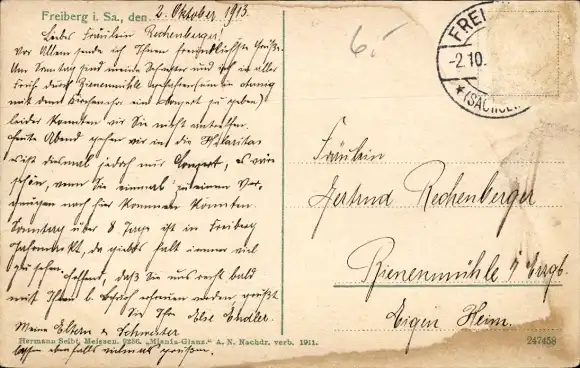 Freiberg i. Sa., den 2. Oktober 1913.
Liebes Fräulein Rechenberger!
Vor Allem sende ich Ihnen freundlichste Grüße.
Am Sonntag sind meine Schwester und ich in aller
Früh durch Bienenmühle
mit dem ein Concert zu geben)
leider konnten wir Sie nicht antreffen.
Heute Abend gehen wir in die Hilaritas
ist diesmal jedoch nur Concert, es wäre
schön, wenn Sie einmal zu einem Ver-
gnügen nach hier kommen könnten.
Sonntag über 8 Tage ist in Freiberg
Jahrmarkt, da giebts halt immer viel
zu sehen. Hoffend, daß Sie uns recht bald
mit Ihrem l. Besuch erfreuen werden, grüßt
Sie Ihre Else Endler.
Meine Eltern & Schwester
lassen ebenfalls vielmals grüßen.
Hermann Seibt, Meissen. 0256. „Misnia-Glanz." A. N. Nachdr. verb. 1911.
6.-
FREI
-2.10.
*(SACHSEN
Fräulein
Gertrud Rechenberger
Bienenmühle i/ Erzgb.
Eigen Heim.
247458